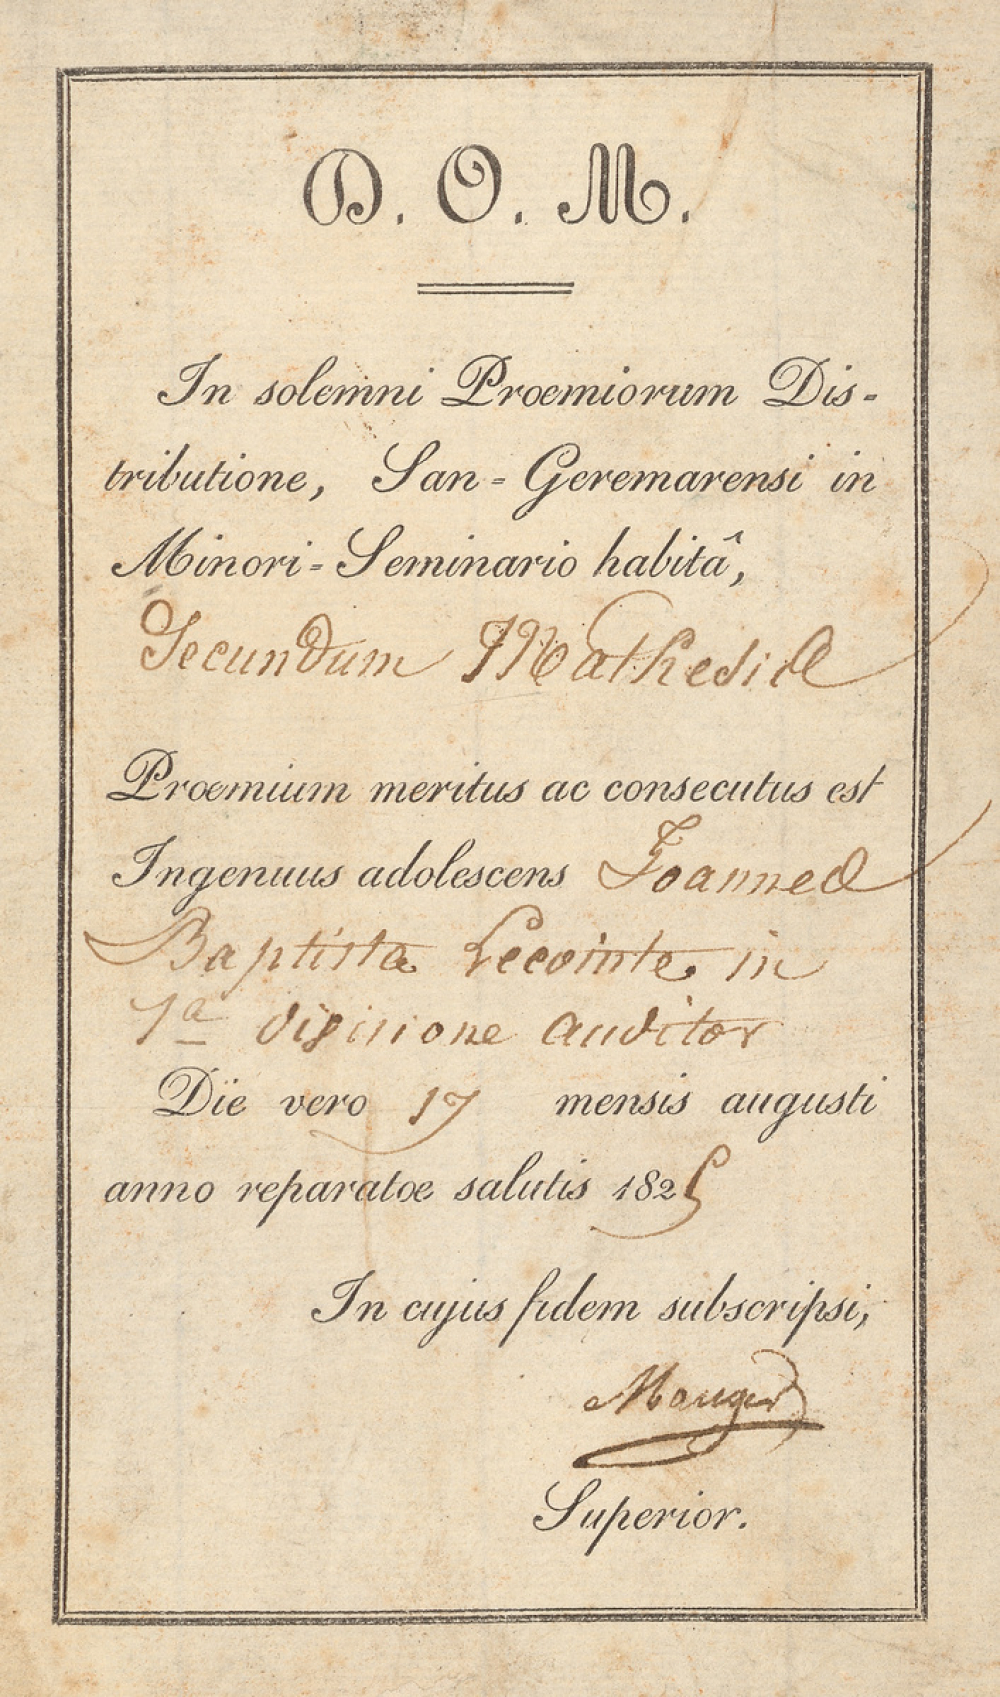 D. O. M.
In solemni Prœmiorum Dis-
tributione, San-Geremarensi in
Minori-Seminario habitâ,
Secundum Matheseos
Prœmium meritus ac consecutus est
Ingenuus adolescens Joannes
Baptista Lecointe in
1a divisione auditor
Dïe vero 17 mensis augusti
anno reparatœ salutis 1825
In cujus fidem subscripsi,
Mauger
Superior.